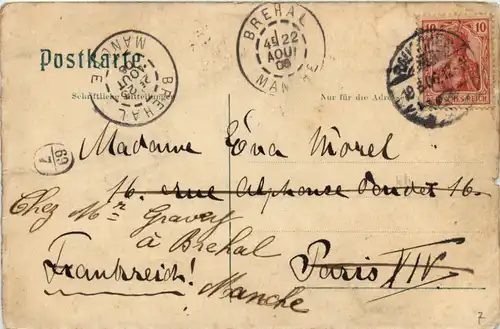 Postkarte
BREHAL
MANCHE
22
AOUT
06
BREHAL
MANCHE
AOUT
10
Schriftliche Mitteilungen
Nur für die Adre
69
7
Madame Eva Morel
16. rue Alphonse Daudet 16.
Chez Mr Gravey
à Brehal
Paris XIV.
Frankreich!
Manche
7